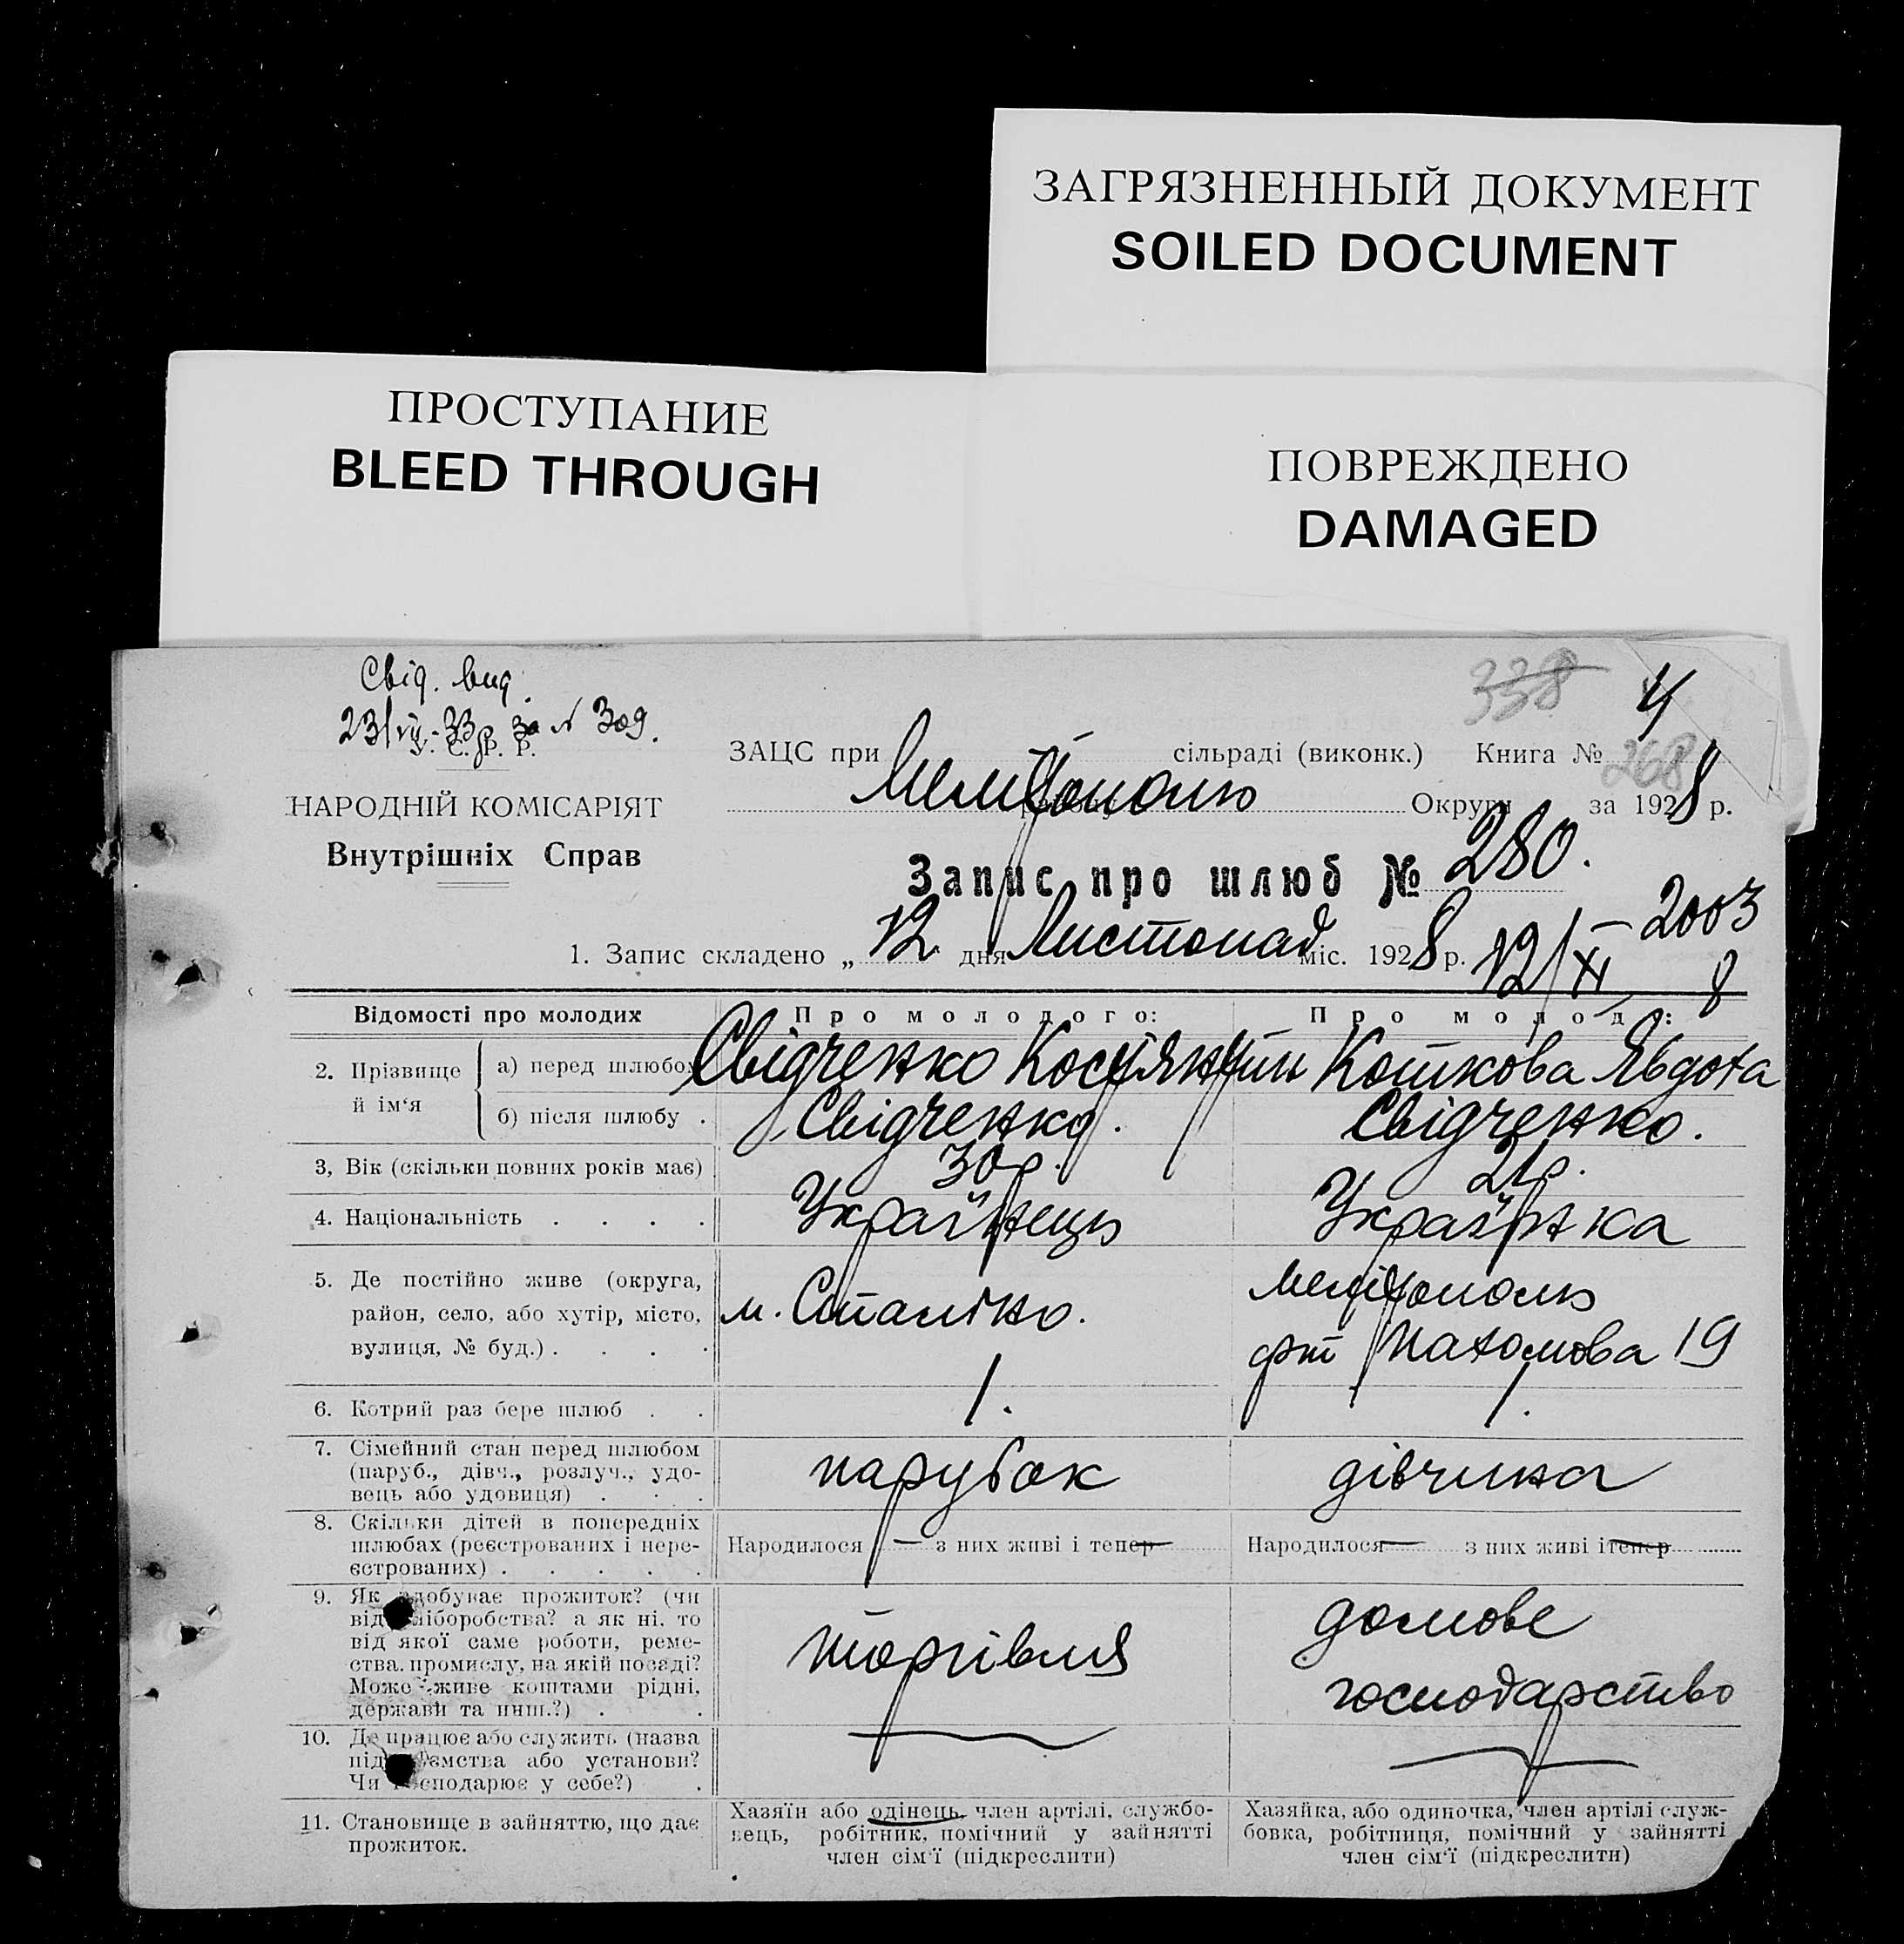 ЗАГРЯЗНЕННЫЙ ДОКУМЕНТ
SOILED DOCUMENT
ПРОСТУПАНИЕ
BLEED THROUGH
ПОВРЕЖДЕНО
DAMAGED
Свід. вид.
23/VII-33р. за № 309.
У. С. Р. Р.
НАРОДНІЙ КОМІСАРІЯТ
Внутрішніх Справ
338 4
ЗАЦС при сільраді (виконк.) Книга № 268
Мелітополь Округи за 1928 р.
Запис про шлюб № 280.
1. Запис складено „ 12 дня Листопад міс. 1928 р. 12/XI 2003
8
Відомості про молодих Про молодого: Про молоду:
2. Прізвище й ім‘я
а) перед шлюбом Свідченко Костянтин Кошкова Явдоха
б) після шлюбу . Свідченко. Свідченко.
3, Вік (скільки повних років має) 30р. 21р.
4. Національність . . . . Українець Українка
5. Де постійно живе (округа, район, село, або хутір, місто, вулиця, № буд.) . . . .
м. Сталіно.
Мелітополь
Пахомова 19
6. Котрий раз бере шлюб . . 1. 1.
7. Сімейний стан перед шлюбом (паруб., дівч., розлуч., удовець або удовиця) . . .
парубок дівчина
8. Скільки дітей в попередніх шлюбах (реєстрованих і нереєстрованих) . . . . .
Народилося — з них живі і тепер — Народилося — з них живі і тепер —
9. Як здобуває прожиток? (чи від хліборобства? а як ні, то від якої саме роботи, ремества, промислу, на якій посаді? Може живе коштами рідні, держави та инш.?) . .
торгівля
домове
господарство
10. Де працює або служить (назва підприємства або установи? Чи господарює у себе?) .
11. Становище в зайняттю, що дає прожиток.
Хазяїн або одінець, член артілі, службовець, робітник, помічний у зайнятті член сім‘ї (підкреслити)
Хазяйка, або одиночка, член артілі службовка, робітниця, помічний у зайнятті член сім‘ї (підкреслити)